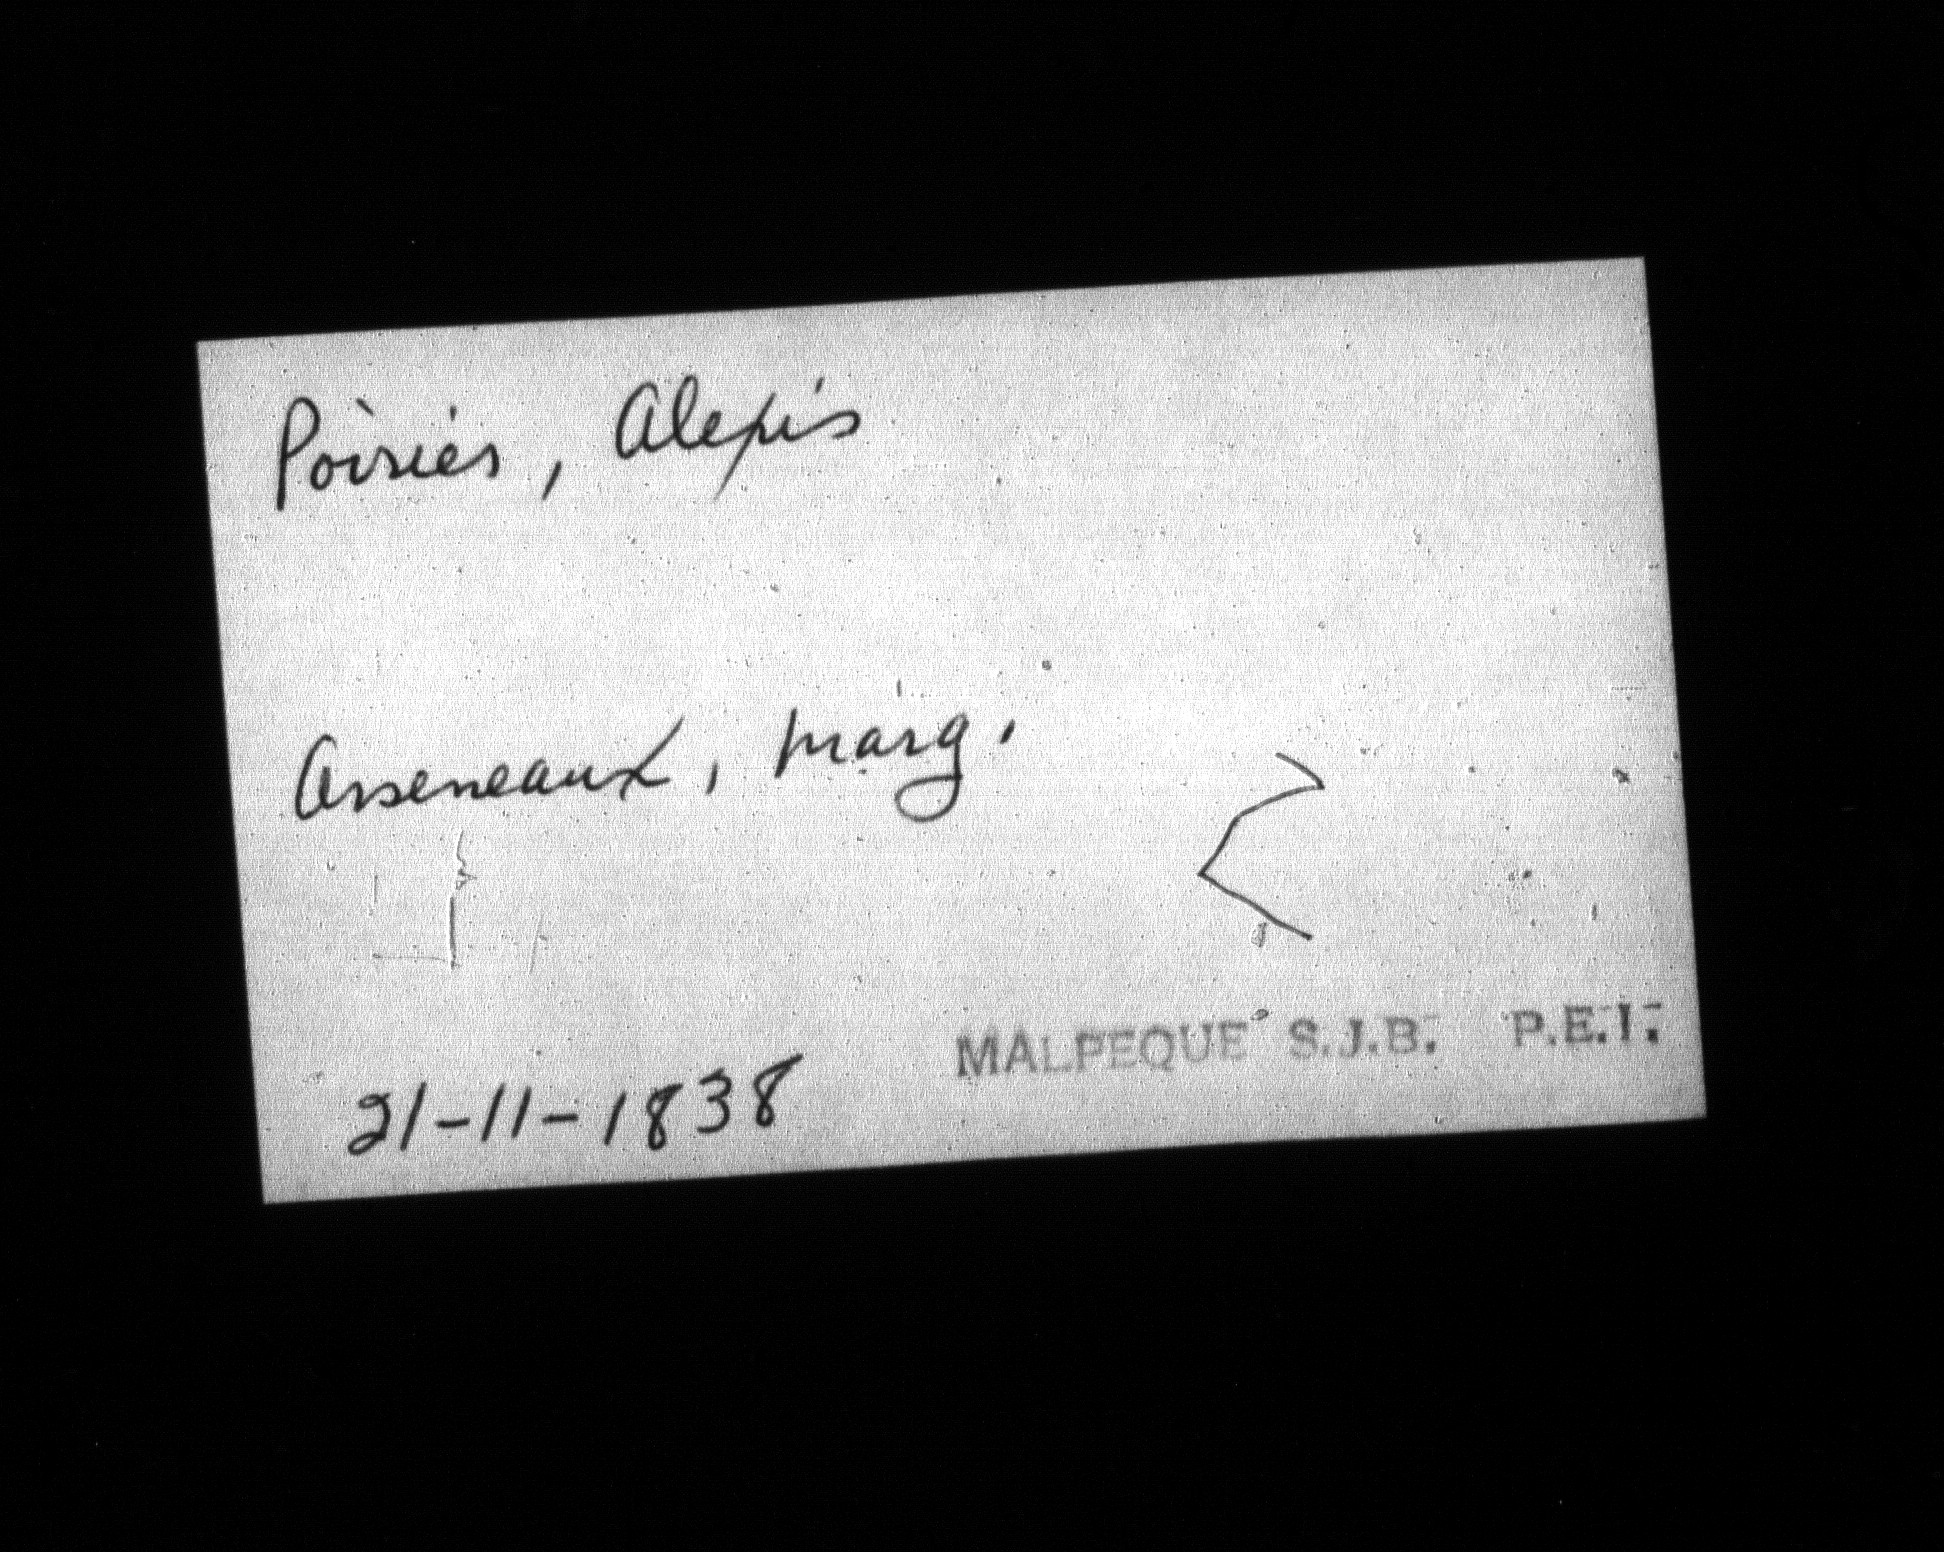 Poirier, Alexis
Arseneaux, Marg.
21-11-1838
MALPEQUE S.J.B. P.E.I.